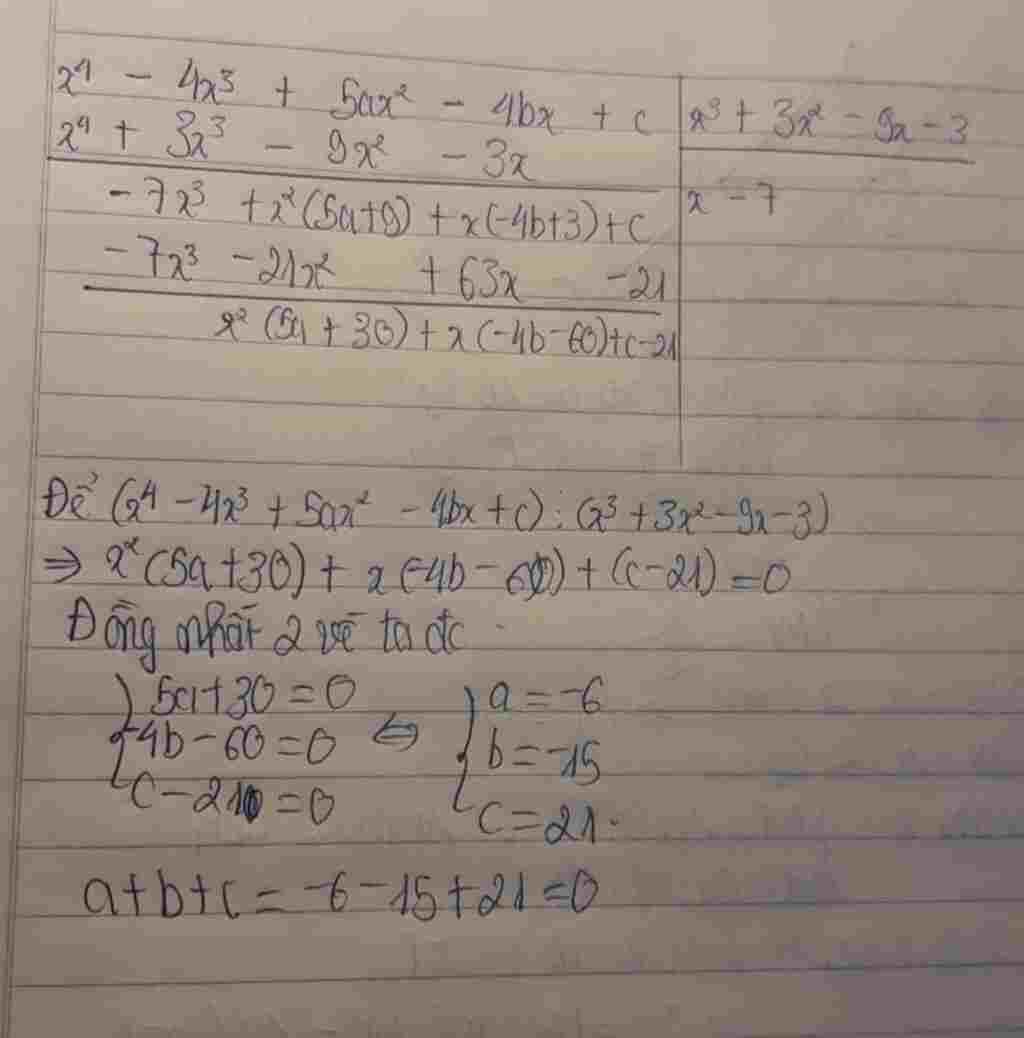 x⁴ - 4x³ + 5ax² - 4bx + c | x³ + 3x² - 9x - 3
x⁴ + 3x³ - 9x² - 3x
-7x³ + x²(5a+9) + x(-4b+3)+c | x - 7
-7x³ - 21x² + 63x - 21
x²(5a + 30) + x(-4b-60)+c-21
Để (x⁴ - 4x³ + 5ax² - 4bx + c) : (x³ + 3x² - 9x - 3)
⇒ x²(5a+30) + x(-4b - 60) + (c-21) = 0
Đồng nhất 2 vế ta đc
{ 5a+30 = 0 ⇔ { a = -6
-4b - 60 = 0 b = -15
c - 21 = 0 c = 21.
a+b+c = -6 - 15 + 21 = 0